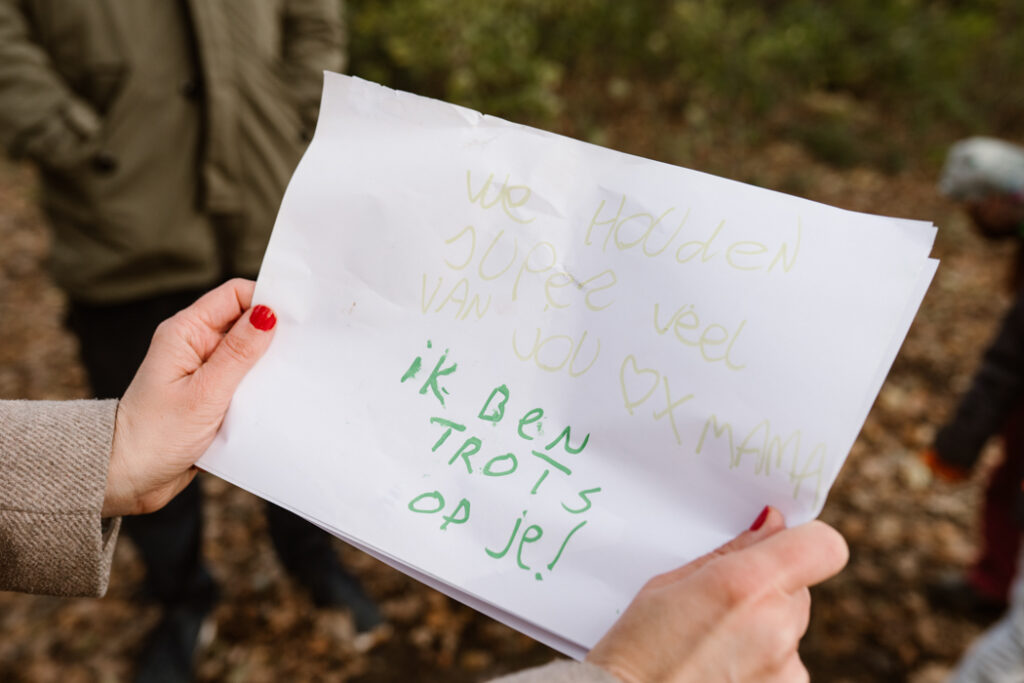 We HOUden
SUPer veel
VAN JOU ♡X MAMA
iK BeN
TROTS
OP je!